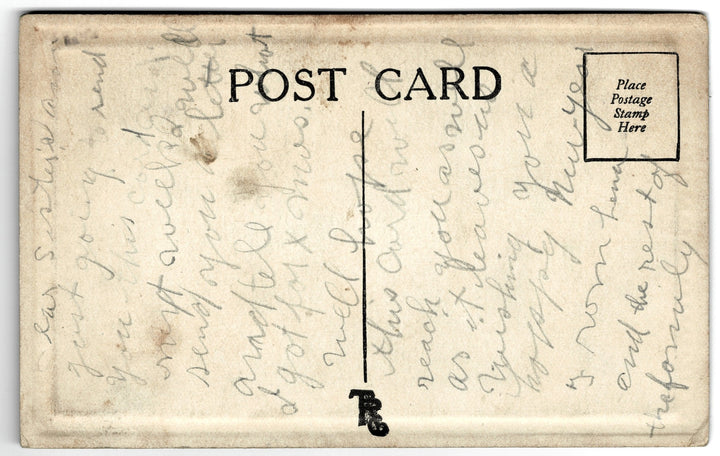 POST CARD
Place
Postage
Stamp
Here
ear Sister is am
Just going to send
you this card and
next week I will
send you a letter
and tell you what
I got for x mas.
Well hope
this card will
reach you as well
as it leaves us
Wishing you a
happy New Year
From Lena
and the rest of
the formily